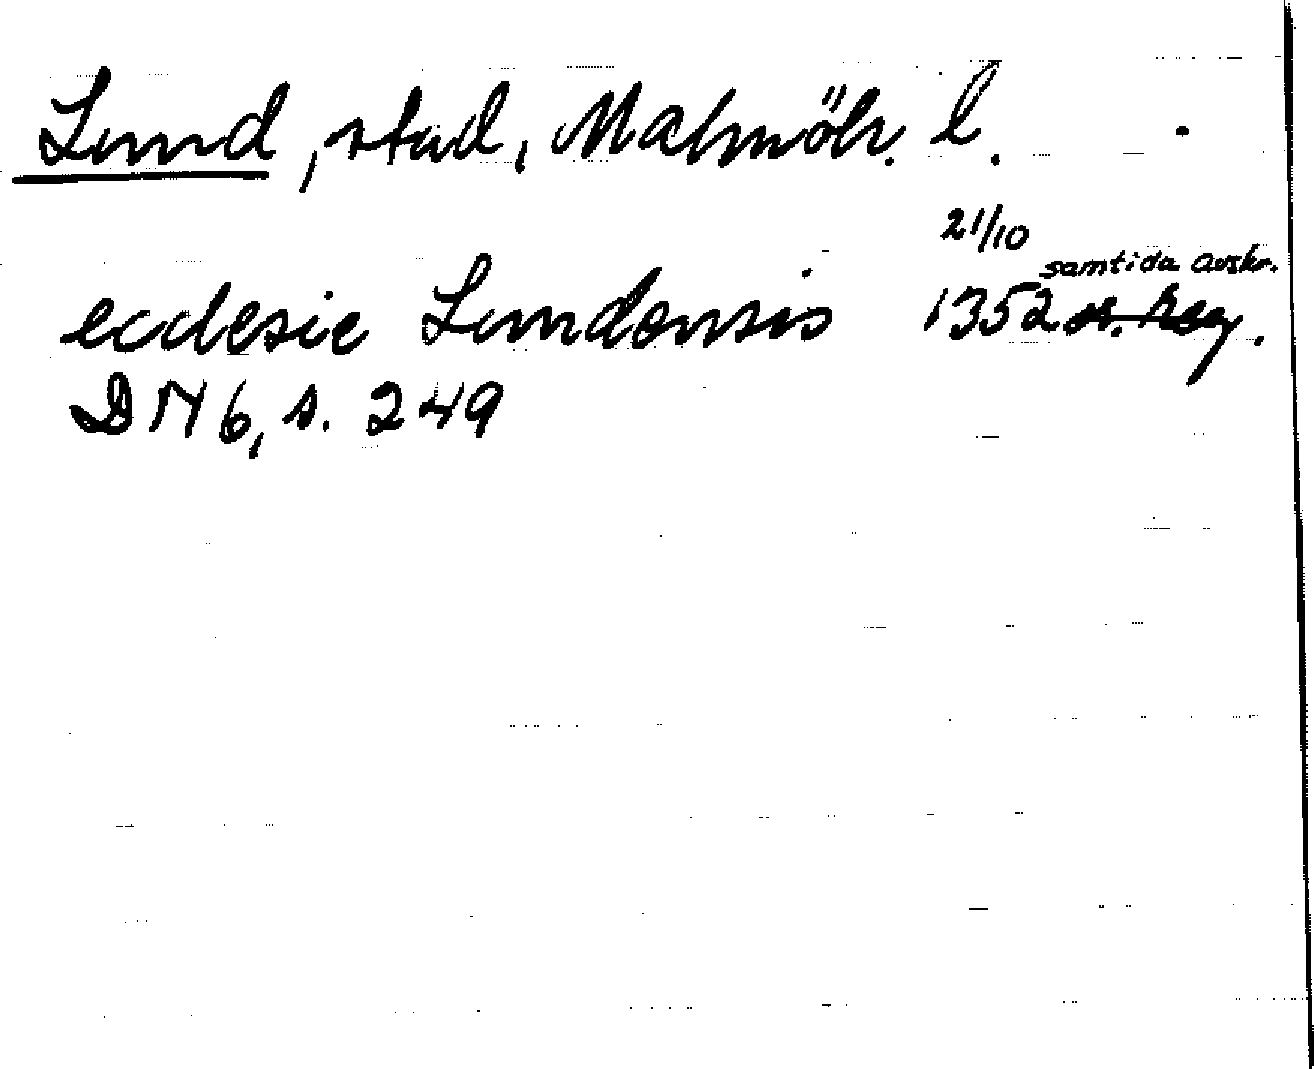 Lund, stad, Malmöh. l.
21/10
samtida avskr.
ecclesie Lundensis 1352
DN 6, s. 249